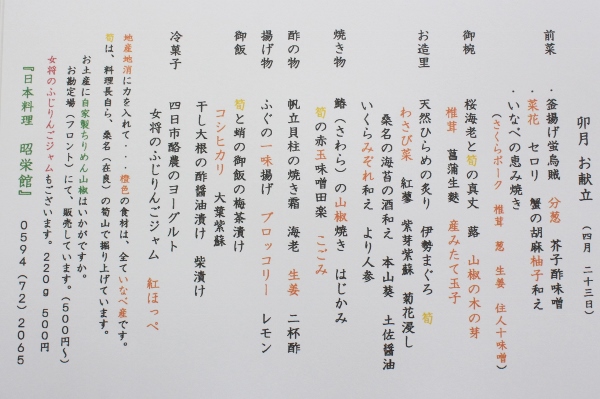 卯月 お献立 (四月 二十三日)
前菜 ・釜揚げ蛍烏賊 分葱 芥子酢味噌
・菜花 セロリ 蟹の胡麻柚子和え
・いなべの恵み焼き
(さくらポーク 椎茸 葱 生姜 住人十味噌)
御椀 桜海老と筍の真丈 蕗 山椒の木の芽
椎茸 菖蒲生麩 産みたて玉子
お造里 天然ひらめの炙り 伊勢まぐろ 筍
わさび菜 紅蓼 紫芽紫蘇 菊花浸し
桑名の海苔の酒和え 本山葵 土佐醤油
いくらみぞれ和え より人参
焼き物 鰆(さわら)の山椒焼き はじかみ
筍の赤玉味噌田楽 こごみ
酢の物 帆立貝柱の焼き霜 海老 生姜 二杯酢
揚げ物 ふぐの一味揚げ ブロッコリー レモン
御飯 筍と蛸の御飯の梅茶漬け
コシヒカリ 大葉紫蘇
干し大根の酢醤油漬け 柴漬け
冷菓子 四日市酪農のヨーグルト
女将のふじりんごジャム 紅ほっぺ
地産地消に力を入れて・・・橙色の食材は、全ていなべ産です。
筍は、料理長自ら、桑名(在良)の筍山で掘り上げています。
お土産に自家製ちりめん山椒はいかがですか。
お勘定場(フロント)にて、販売しています。(500円~)
女将のふじりんごジャムもございます。220g 500円
『日本料理 昭栄館』 0594(72)2065